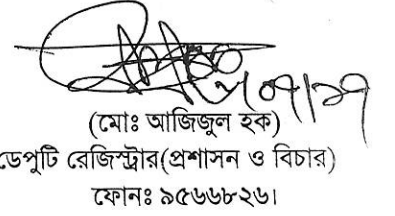 (মোঃ আজিজুল হক)
ডেপুটি রেজিস্ট্রার(প্রশাসন ও বিচার)
ফোনঃ ৯৫৬৬৮২৬।